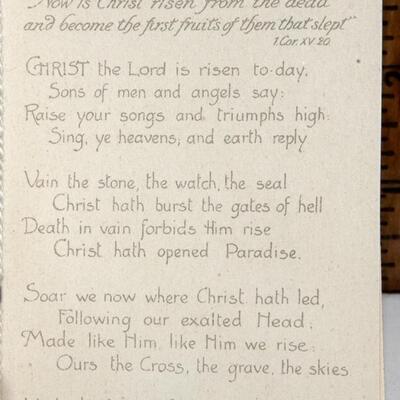 "Now is Christ risen from the dead
and become the first fruits of them that slept"
1. Cor. XV 20.
CHRIST the Lord is risen to-day,
Sons of men and angels say:
Raise your songs and triumphs high:
Sing, ye heavens, and earth reply
Vain the stone, the watch, the seal
Christ hath burst the gates of hell
Death in vain forbids Him rise
Christ hath opened Paradise.
Soar we now where Christ hath led,
Following our exalted Head;
Made like Him, like Him we rise:
Ours the Cross, the grave, the skies